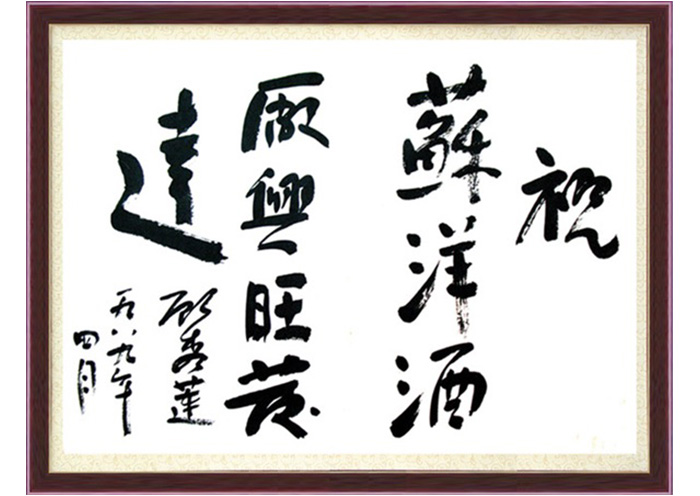 祝
蘇洋酒
厰興旺發
達
顾秀蓮
一九八九年
四月